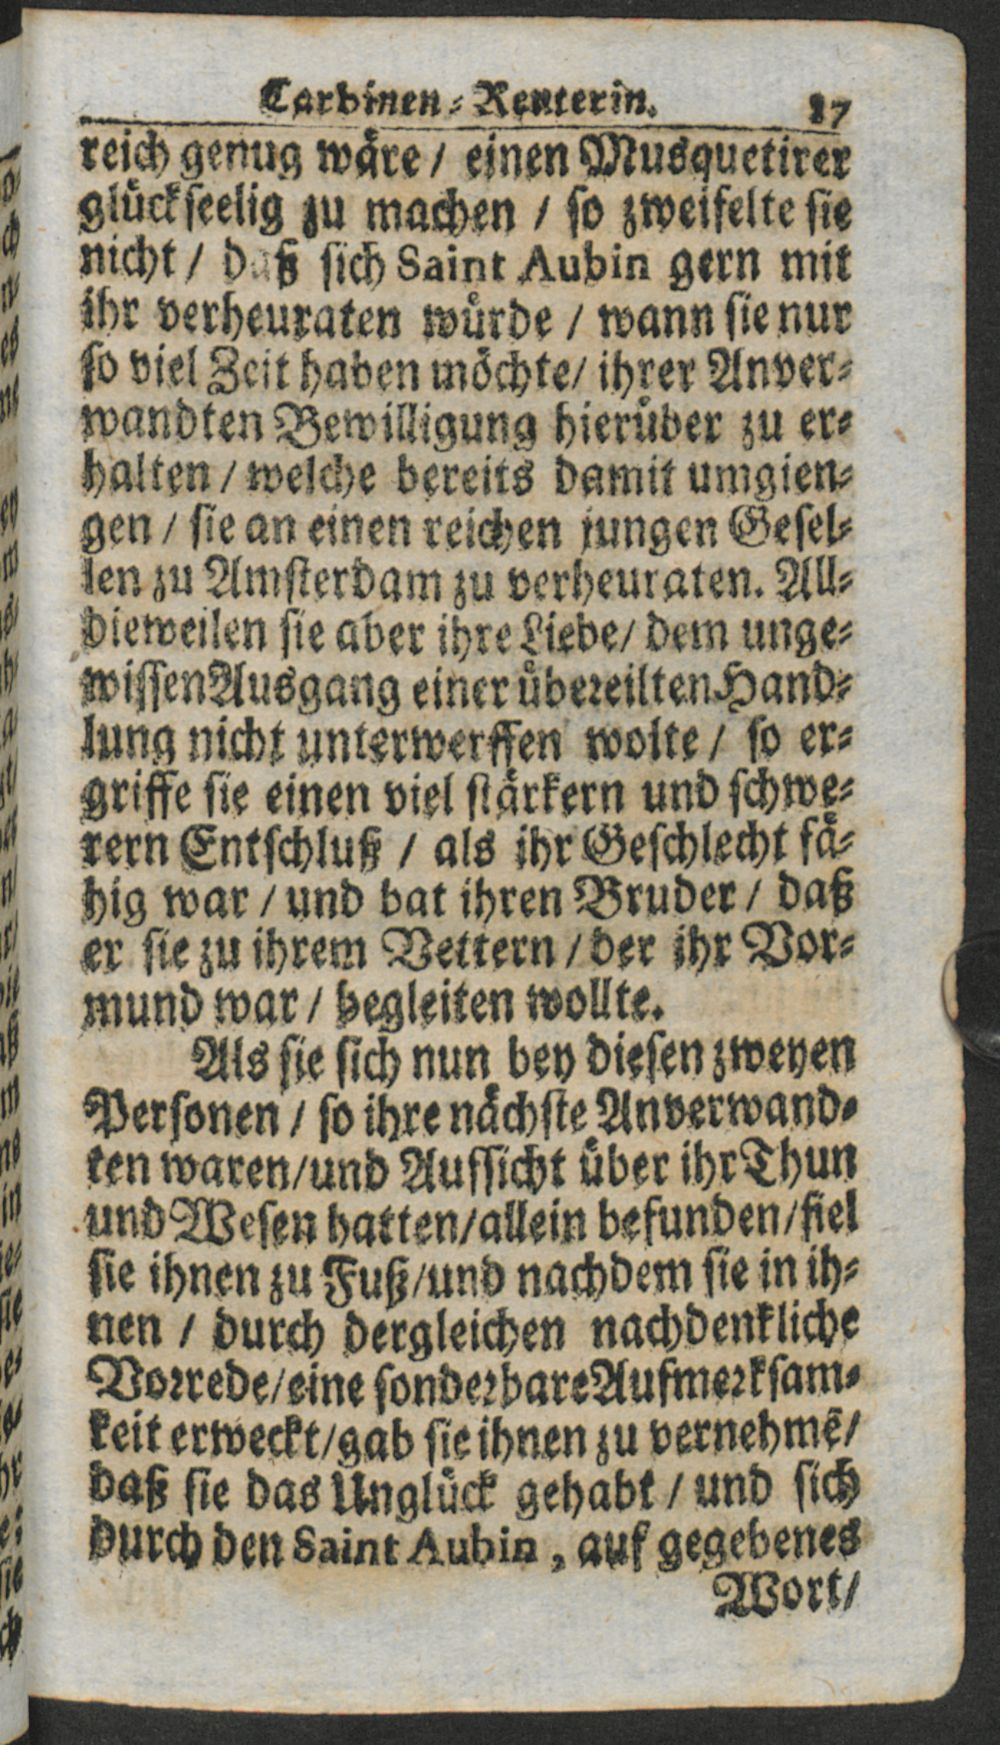 Carbinen-Reuterin. 17
reich genug wåre / einen Musquetirer
glückseelig zu machen / so zweifelte sie
nicht / daß sich Saint Aubin gern mit
ihr verheuraten wůrde / wann sie nur
so viel Zeit haben möchte/ ihrer Anver-
wandten Bewilligung hierůber zu er-
halten / welche bereits damit umgien-
gen / sie an einen reichen jungen Gesel-
len zu Amsterdam zu verheuraten. All-
dieweilen sie aber ihre Liebe/ dem unge-
wissen Ausgang einer übereilten Hand-
lung nicht unterwerffen wolte / so er-
griffe sie einen viel stårkern und schwe-
rern Entschluß / als ihr Geschlecht få-
hig war / und bat ihren Bruder / daß
er sie zu ihrem Vettern / der ihr Vor-
mund war / begleiten wollte.
Als sie sich nun bey diesen zweyen
Personen / so ihre nåchste Anverwand-
ten waren/und Aufsicht über ihr Thun
und Wesen hatten/allein befunden/fiel
sie ihnen zu Fuß/und nachdem sie in ih-
nen / durch dergleichen nachdenkliche
Vorrede/eine sonderbare Aufmerksam-
keit erweckt/gab sie ihnen zu vernehmẽ/
daß sie das Unglück gehabt / und sich
durch den Saint Aubin, auf gegebenes
Wort/